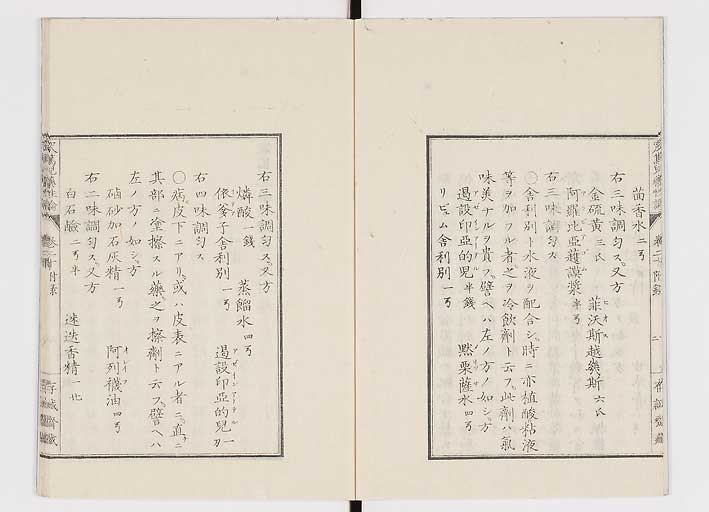 茴香水 二弓
右三味調勻ス。又方
金硫黄 三氏 菲沃斯越幾斯 六氏
阿羅比亞護謨漿 半弓
右三味調勻ス
〇舎利別ト水液ヲ配合シ時ニ亦植酸粘液
等ヲ加フル者之ヲ冷飲劑ト云フ此劑ハ氣
味美ナルヲ貴フ譬ヘハ左ノ方ノ如シ方
遏設印亞的兒 半錢 黙栗薩水 四弓
リビュム舎利別 一弓
右三味調勻ス。又方
燐酸 一錢 蒸餾水 四弓
依蒼子舎利別 一弓 遏設印亞的兒 一
右四味調勻ス
〇病皮下ニアリ或ハ皮表ニアル者ニ直ニ
其部ニ塗擦スル藥之ヲ擦劑ト云フ譬ヘハ
左ノ方ノ如シ方
硇砂加石灰精 一弓 阿列襪油 四弓
右二味調勻ス又方
白石鹼 二弓半 迷迭香精 一